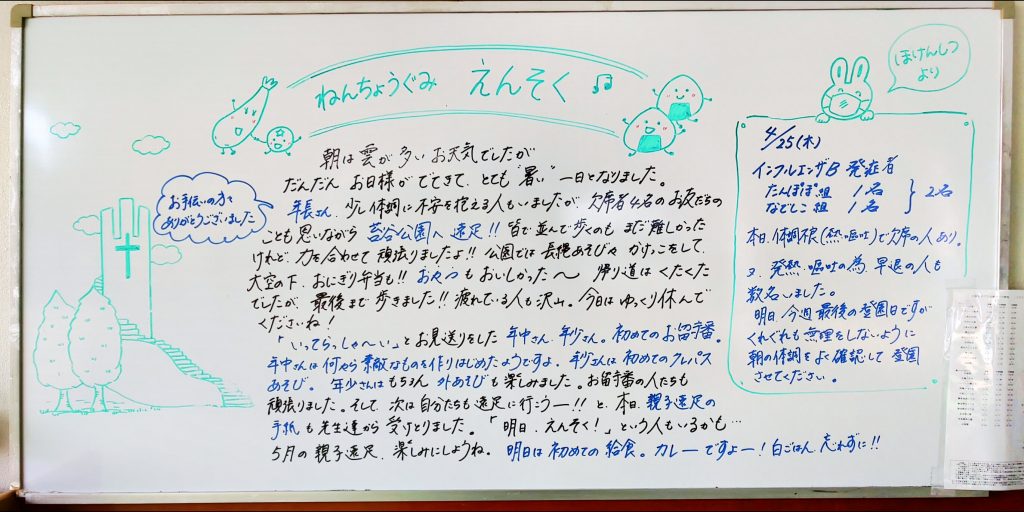 ねんちょうぐみ えんそく
お手伝いの方々
ありがとうございました
朝は雲が多いお天気でしたが
だんだん お日様がでてきて、とても"暑い"一日となりました。
年長さん、少し体調に不安を抱える人もいましたが 欠席者4名のお友だちの
ことも思いながら 苔谷公園へ 遠足!! 皆で並んで歩くのも まだ難しかった
けれど、力を合わせて 頑張りましたよ!! 公園では長縄あそびや かけっこをして、
大空の下、おにぎり弁当も!! おやつもおいしかった〜 帰り道は くたくた
でしたが、最後まで 歩きました!! 疲れている人も沢山。今日は ゆっくり休んで
くださいね!
「いってらっしゃ〜い」とお見送りをした 年中さん、年少さん。初めてのお留守番。
年中さんは何やら素敵なものを作りはじめたようですよ。年少さんは 初めてのクレパス
あそび。 年少さんはもちろん 外あそびも楽しみました。お留守番の人たちも
頑張りました。そして、次は自分たちも遠足に行こうー!! と、本日、親子遠足の
手紙も先生達から受けとりました。「明日、えんそく!」という人もいるかも…
5月の親子遠足、楽しみにしようね。 明日は初めての給食。カレーですよー!白ごはん、忘れずに!!
ほけんしつ
より
4/25(木)
インフルエンザB 発症者
たんぽぽ組 1名
なでしこ組 1名
2名
本日、体調不良(熱・嘔吐)で欠席の人あり。
又、発熱・嘔吐の為、早退の人も
数名いました。
明日、今週最後の登園日ですが
くれぐれも無理をしないように
朝の体調をよく確認して 登園
させてください。